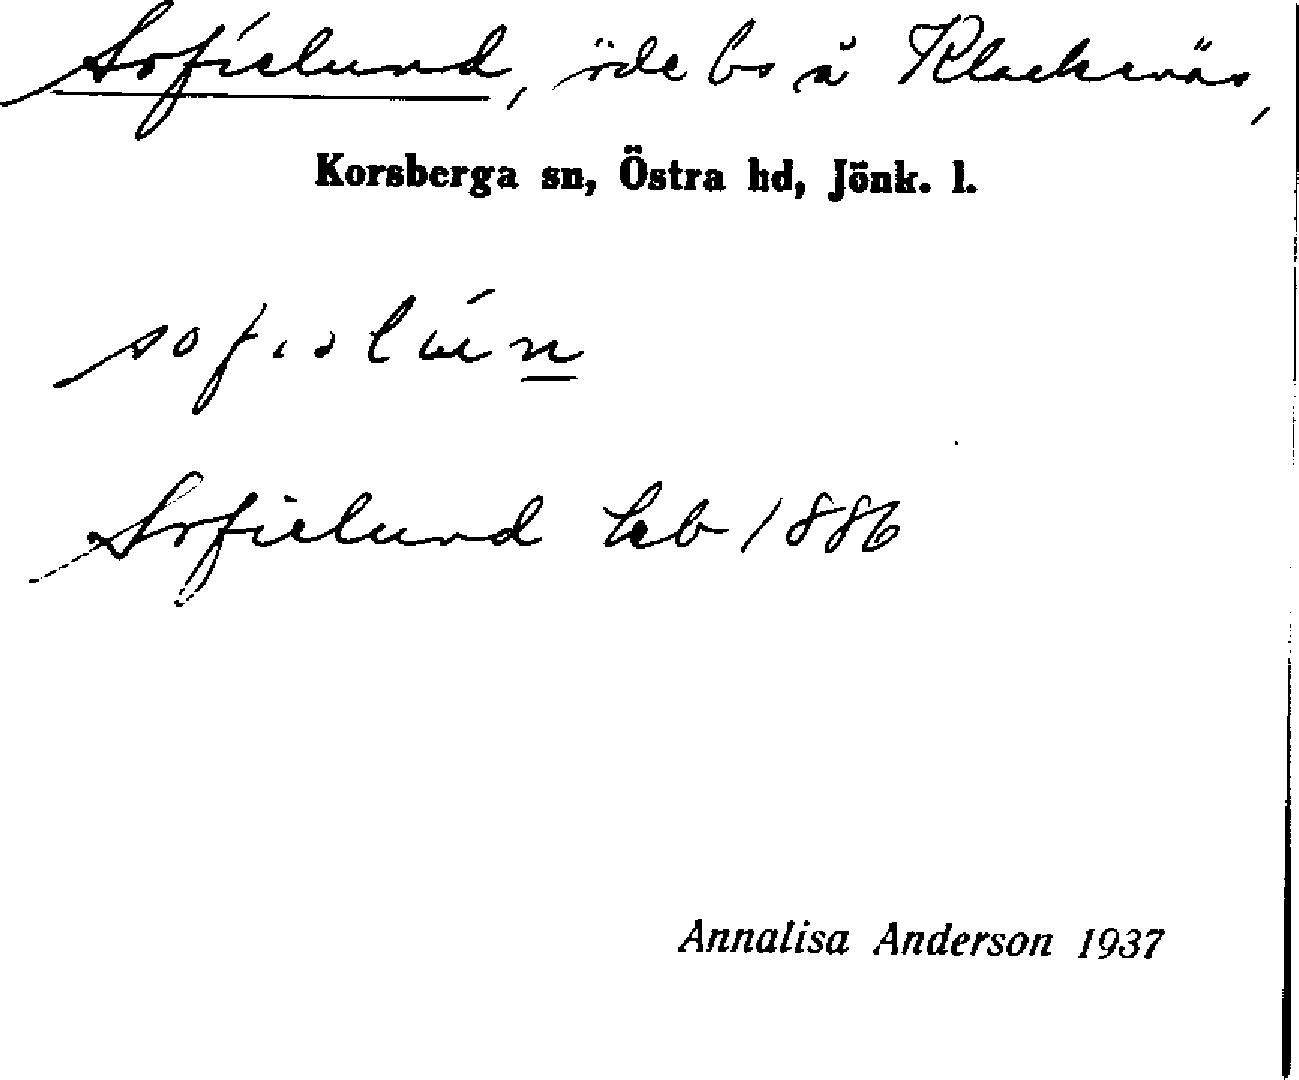 Sofielund, öde bs å Klackenäs,
Korsberga sn, Östra hd, Jönk. l.
Sofielund hb 1886
Annalisa Anderson 1937